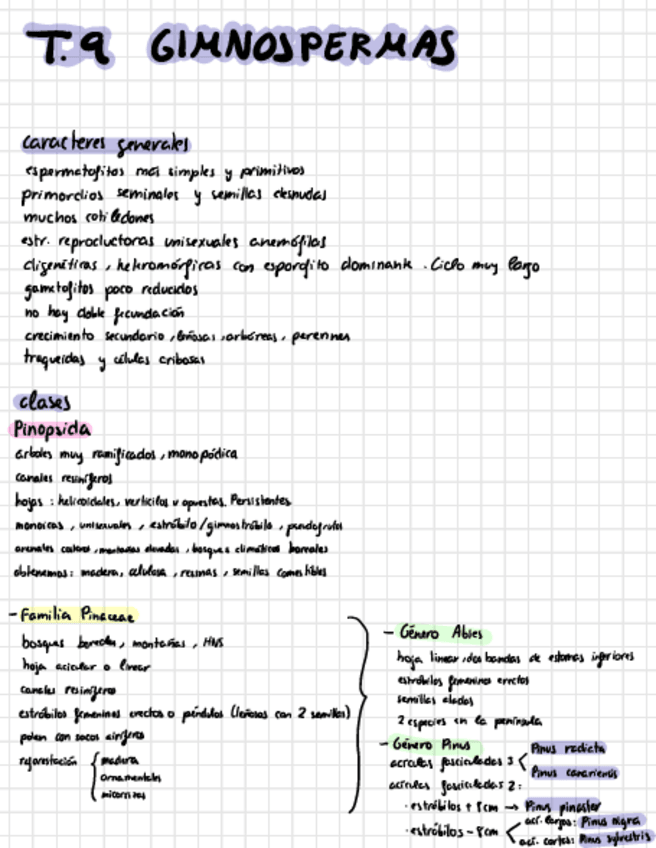 T.9 GIMNOSPERMAS
caracteres generales
espermatofitos más simples y primitivos
primordios seminales y semillas desnudas
muchos cotiledones
estr. reproductoras unisexuales anemófilas
digenéticas, heteromórficas con esporofito dominante. Ciclo muy largo
gametofitos poco reducidos
no hay doble fecundación
crecimiento secundario, leñosas, arbóreas, perennes
traqueidas y células cribosas
clases
Pinopsida
árboles muy ramificados, monopódica
canales resiníferos
hojas: helicoidales, verticilos u opuestas. Persistentes
monoicas, unisexuales, estróbilo/gimnostróbilo, pseudofrutos
arenales costeros, montañas elevadas, bosques climácicos boreales
obtenemos: madera, celulosa, resinas, semillas comestibles
- Familia Pinaceae
bosques boreales, montañas, HNS
hoja acicular o linear
canales resiníferos
estróbilos femeninos erectos o péndulos (leñosas con 2 semillas)
polen con sacos aeríferos
reforestación { madera
ornamentales
micorrizas
- Género Abies
hoja linear, dos bandas de estomas inferiores
estróbilos femeninos erectos
semillas aladas
2 especies en la península
- Género Pinus
acículas fasciculadas 3 < Pinus radiata
Pinus canariensis
acículas fasciculadas 2:
· estróbilos + 8cm → Pinus pinaster
· estróbilos - 8cm < aci. largas: Pinus nigra
aci. cortas: Pinus sylvestris